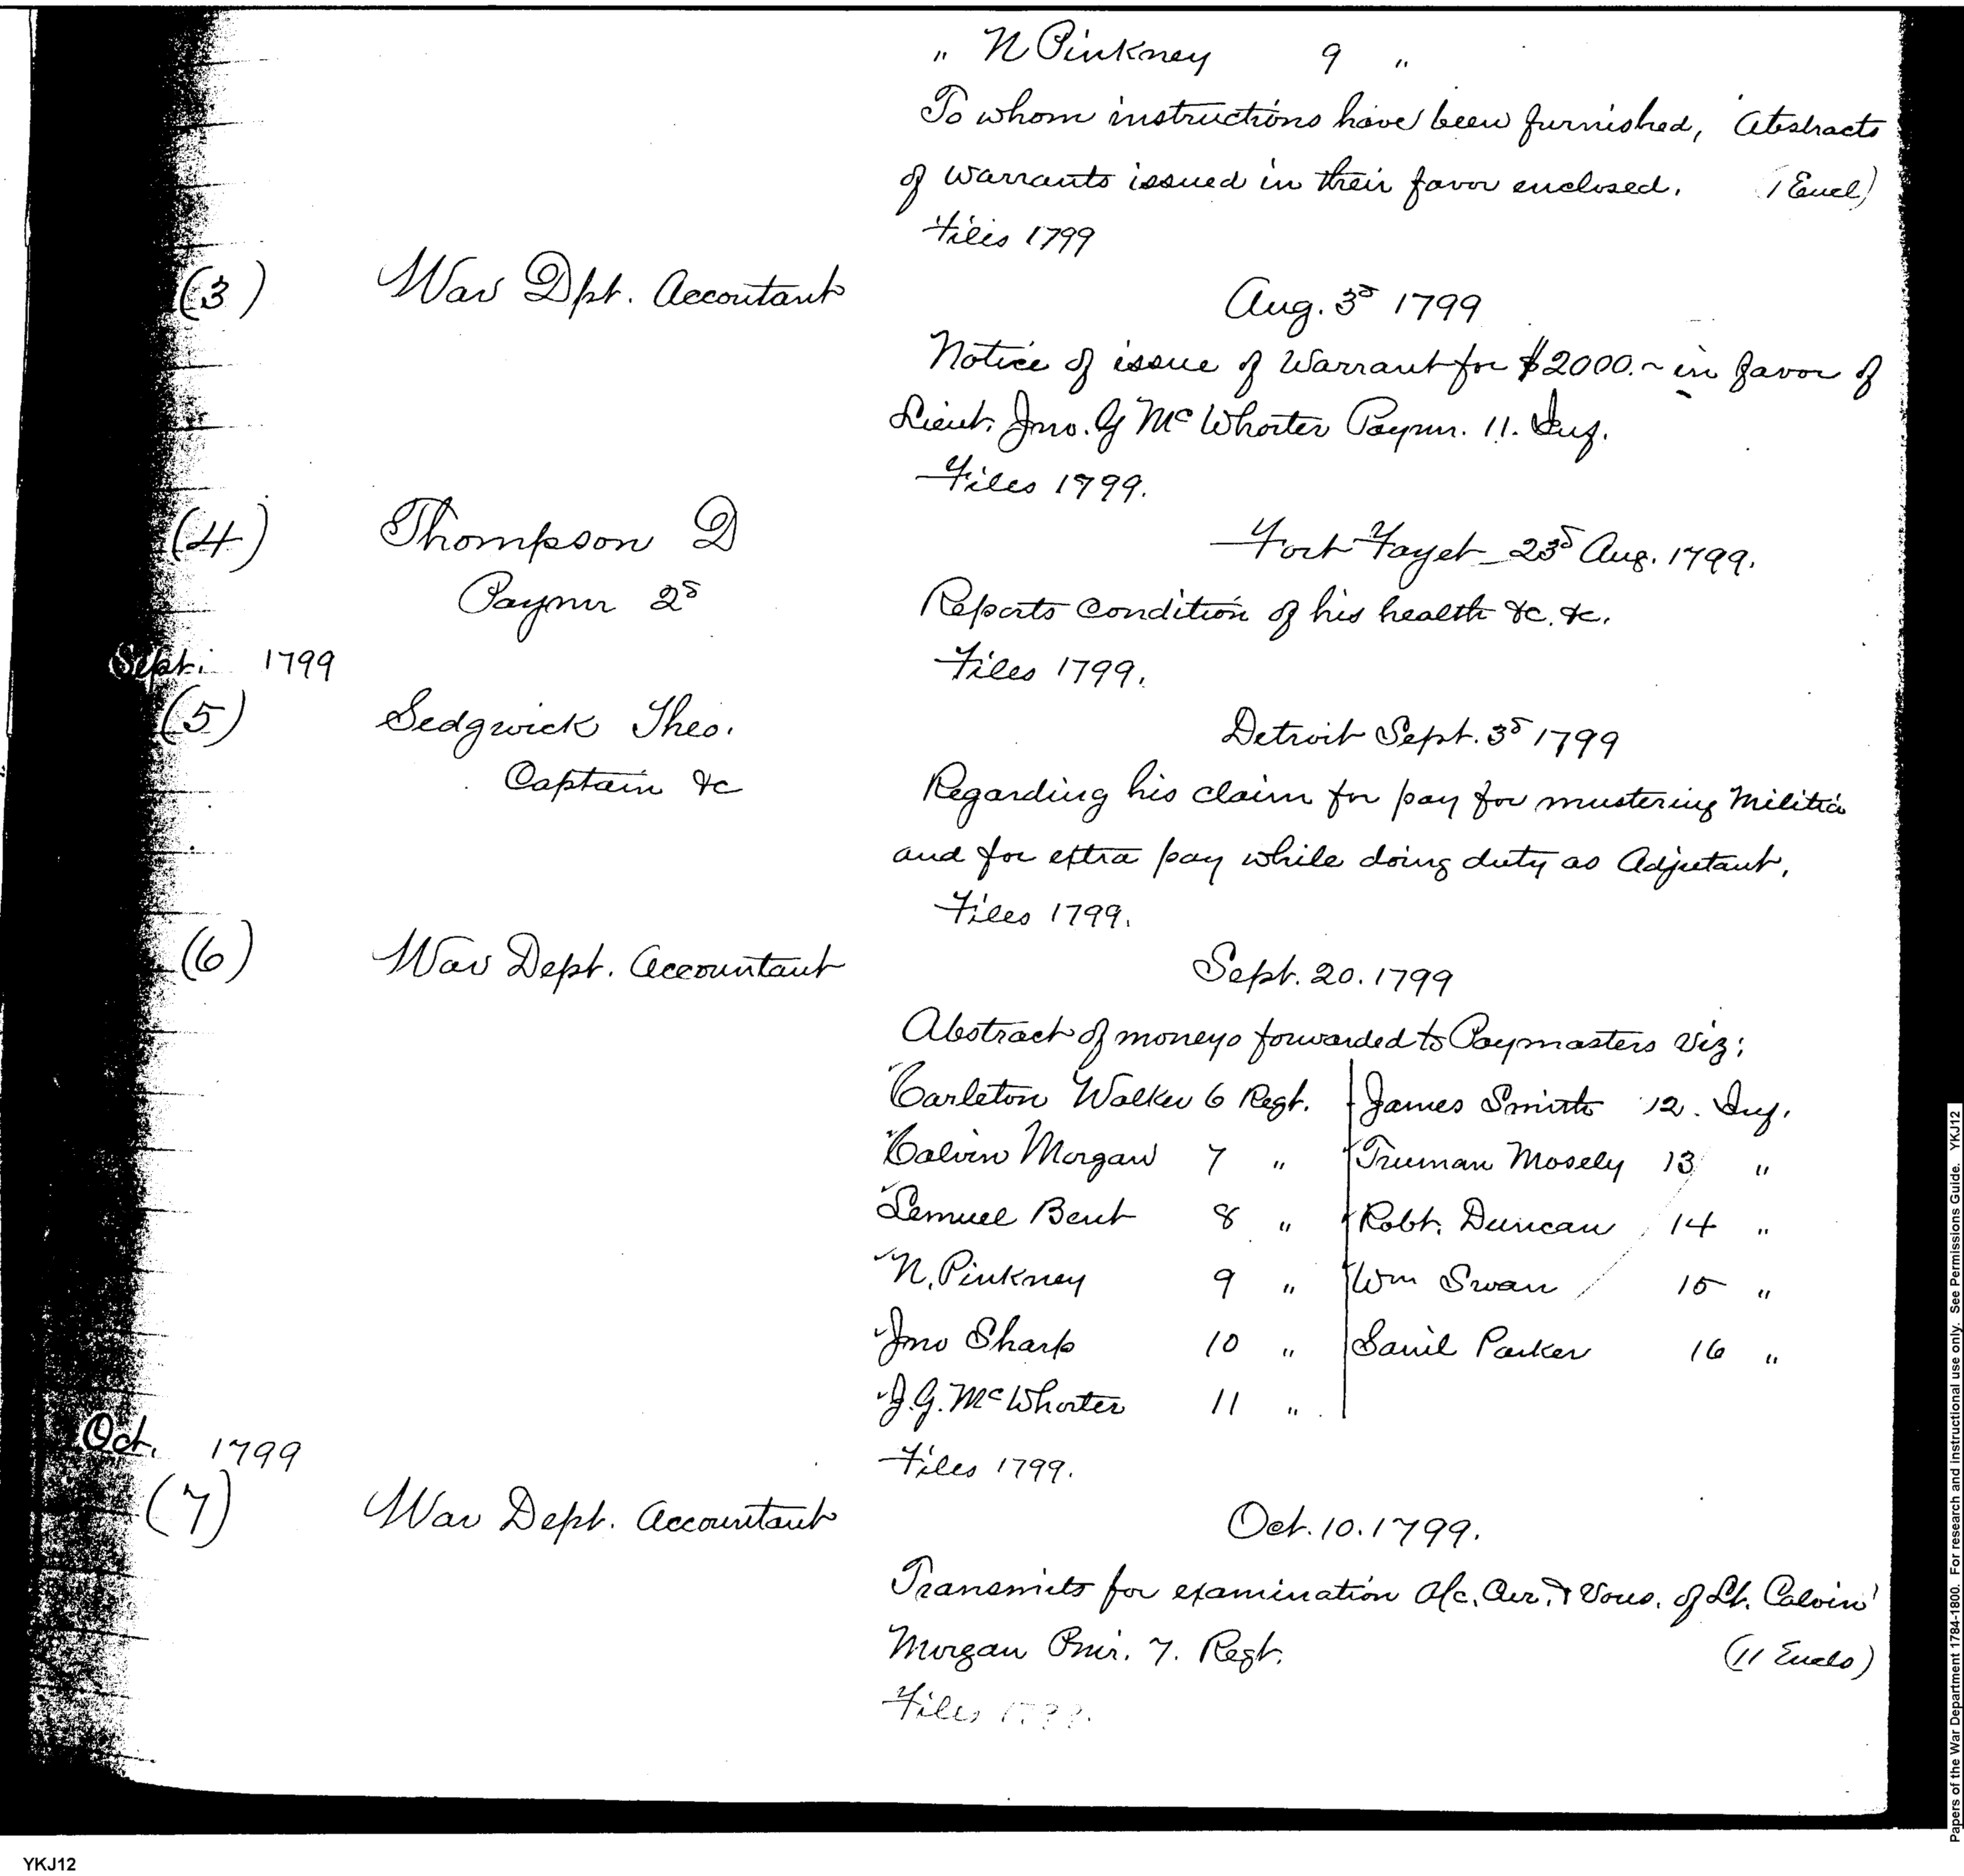 " N Pinkney 9 "
To whom instructions have been furnished, Abstracts
of warrants issued in their favor enclosed. (1 Encl)
Files 1799
(3) War Dpt. Accountant Aug. 3d 1799
Notice of issue of Warrant for $2000.~ in favor of
Lieut. Jno. G McWhorter Paymr. 11. Inf.
Files 1799.
(4) Thompson D Fort Fayet 23d Aug. 1799.
Paymr 2d Reports condition of his health &c. &c.
Sept. 1799 Files 1799.
(5) Sedgwick Theo. Detroit Sept. 3d 1799
Captain &c Regarding his claim for pay for mustering Militia
and for extra pay while doing duty as Adjutant,
Files 1799.
(6) War Dept. Accountant Sept. 20. 1799
Abstract of moneys forwarded to Paymasters viz;
Carleton Walker 6 Regt. James Smith 12. Inf.
Calvin Morgan 7 " Truman Mosely 13 "
Lemuel Bent 8 " Robt. Duncan 14 "
N. Pinkney 9 " Wm Swan 15 "
Jno Sharp 10 " Saml Parker 16 "
J. G. McWhorter 11 "
Oct. 1799 Files 1799.
(7) War Dept. Accountant Oct. 10. 1799.
Transmits for examination a/c. Cur. & Vous. of Lt. Calvin
Morgan Pmr. 7. Regt. (11 Encls)
Files 1799.
Papers of the War Department 1784-1800. For research and instructional use only. See Permissions Guide. YKJ12
YKJ12